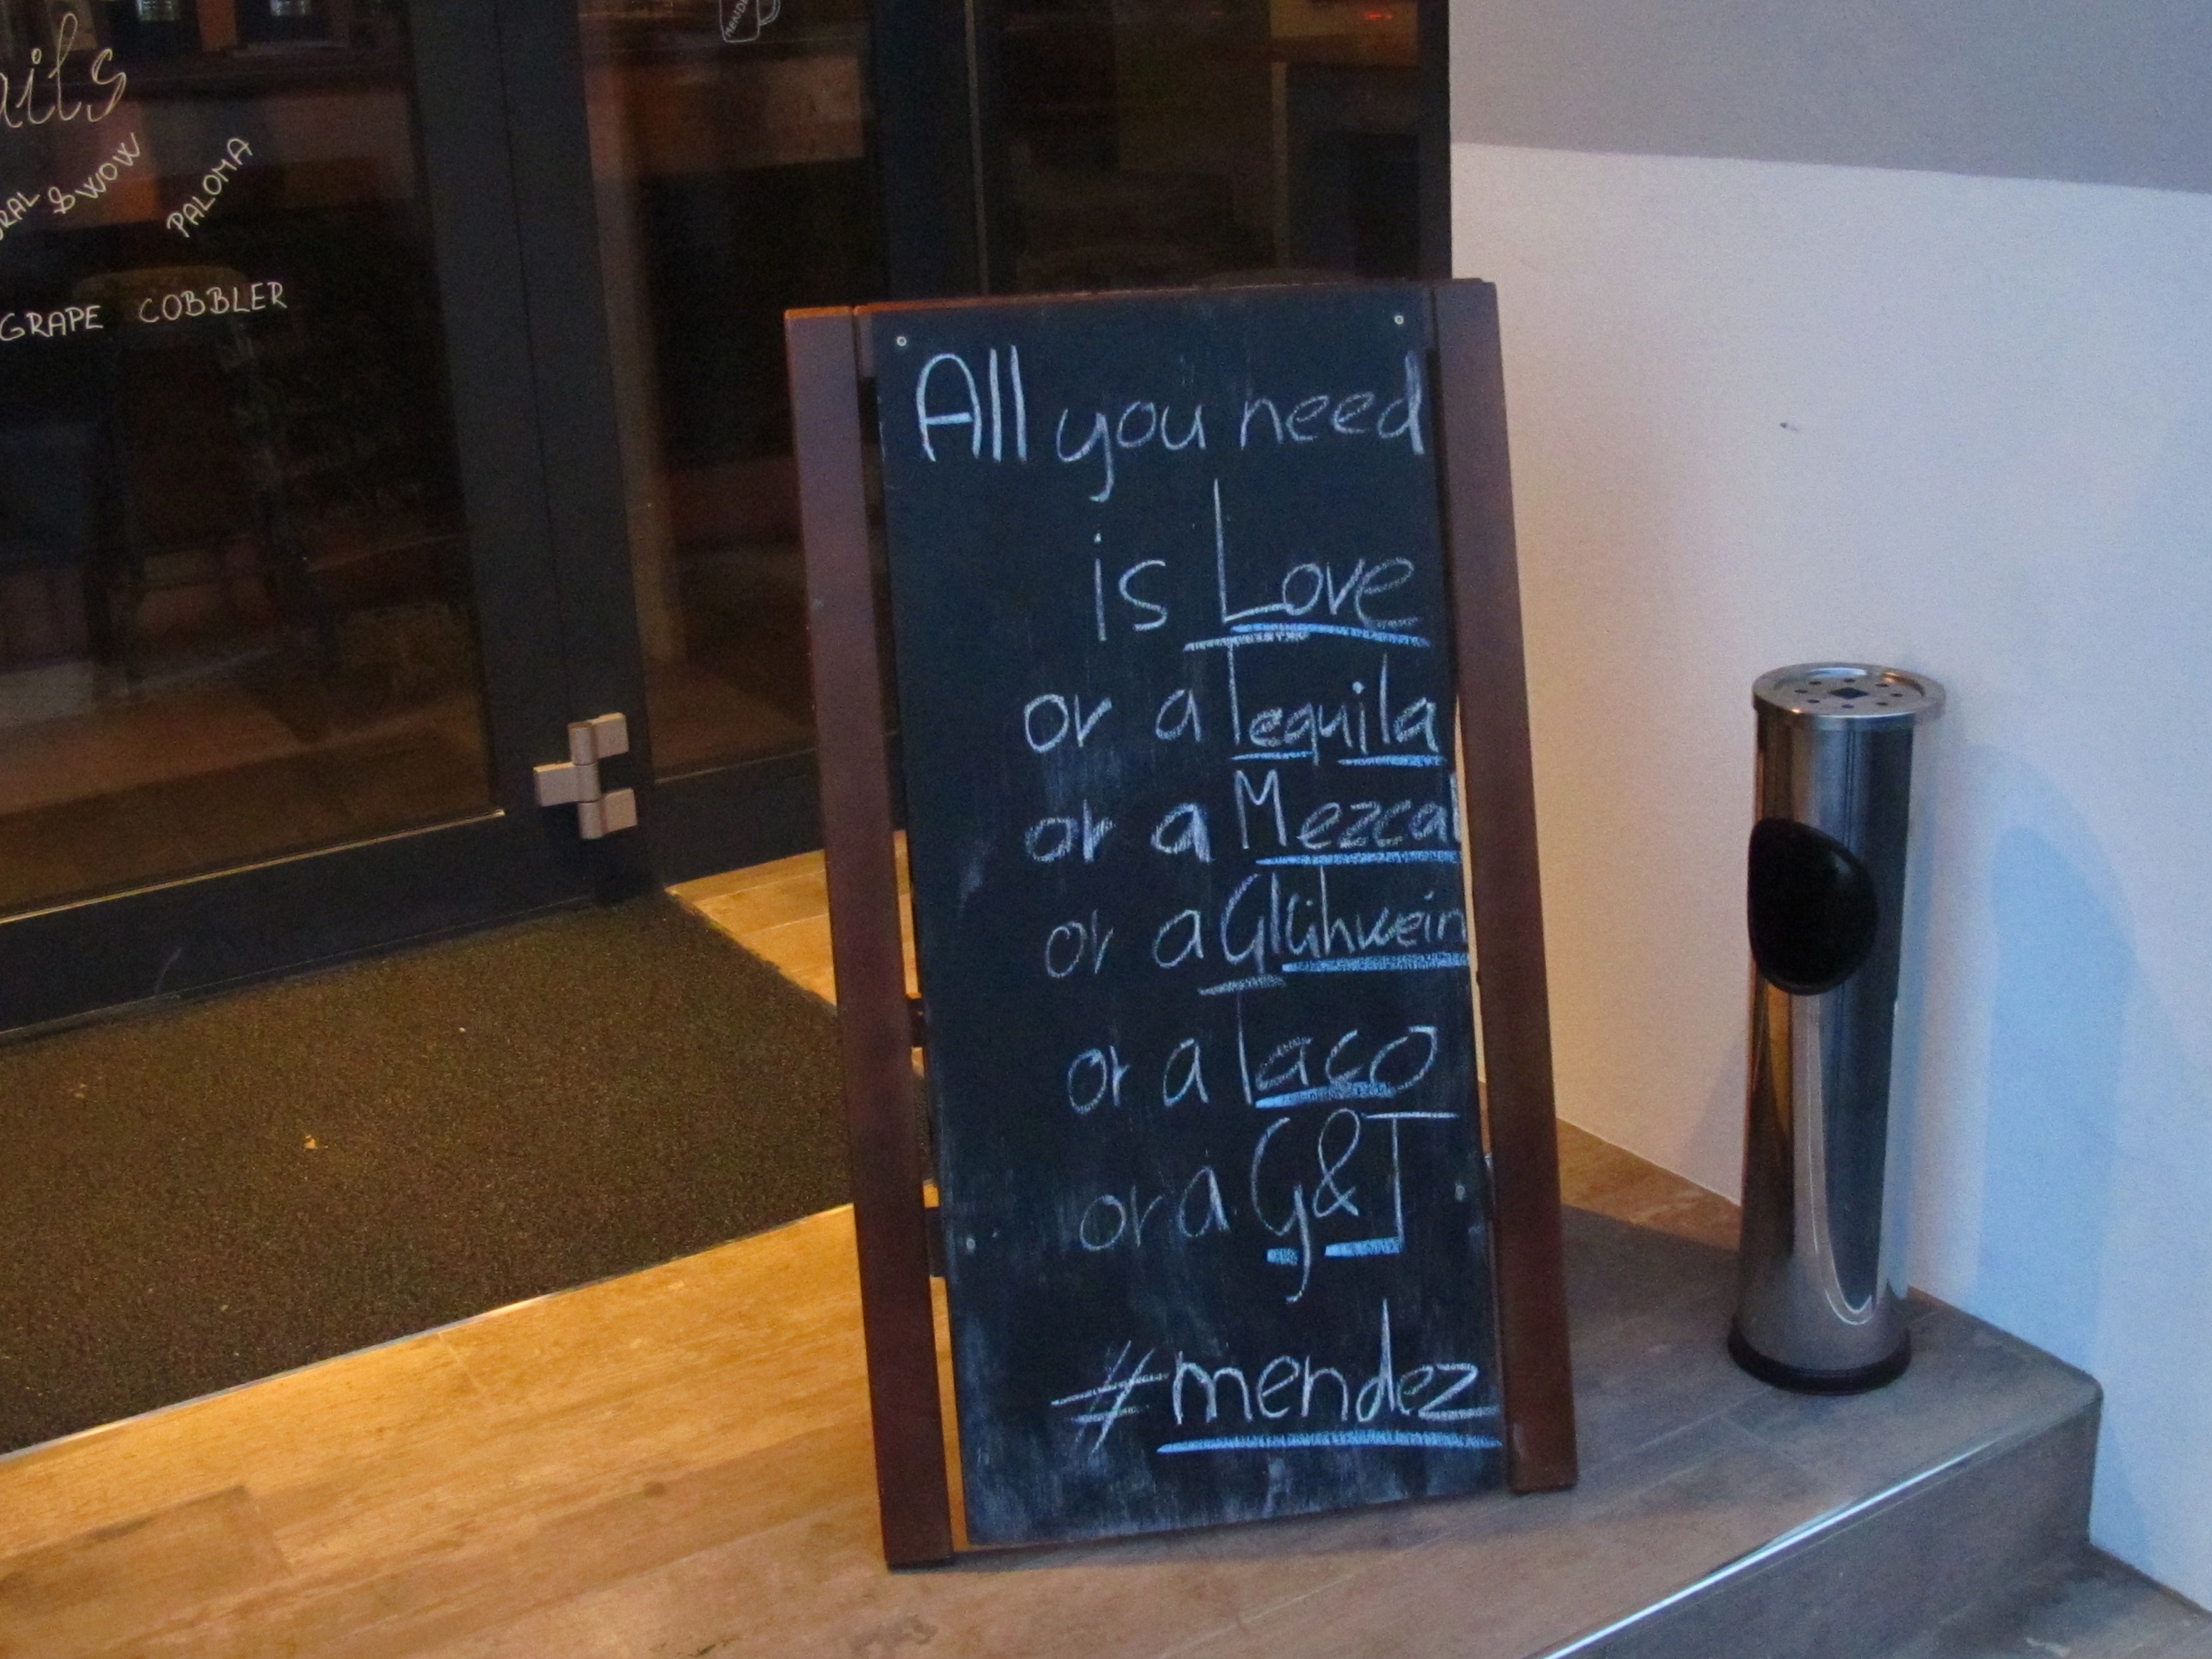 ails
& WOW
PALOMA
GRAPE COBBLER
All you need
is Love
or a Tequila
or a Mezcal
or a Glühwein
or a Taco
or a G&T
#mendez